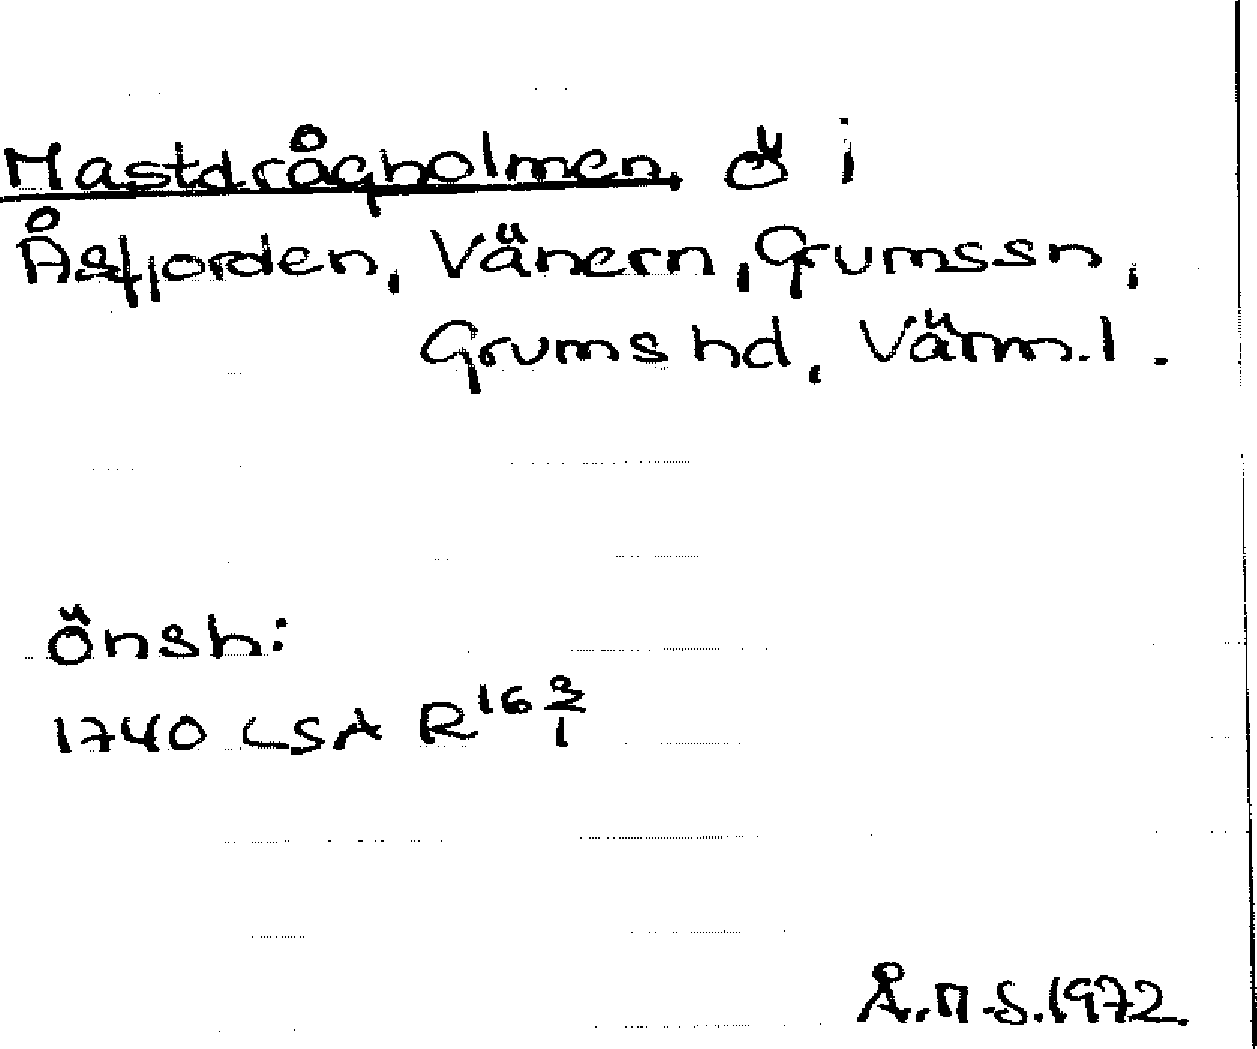 Mastdrågholmen, ö i
Åsfjorden, Vänern, Grumssn,
Grums hd, Värm.l.
Önsh:
1740 LSA R16 2/1
Å.M.S.1972.